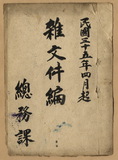 民國三十五年四月起
雜文件編
總務課